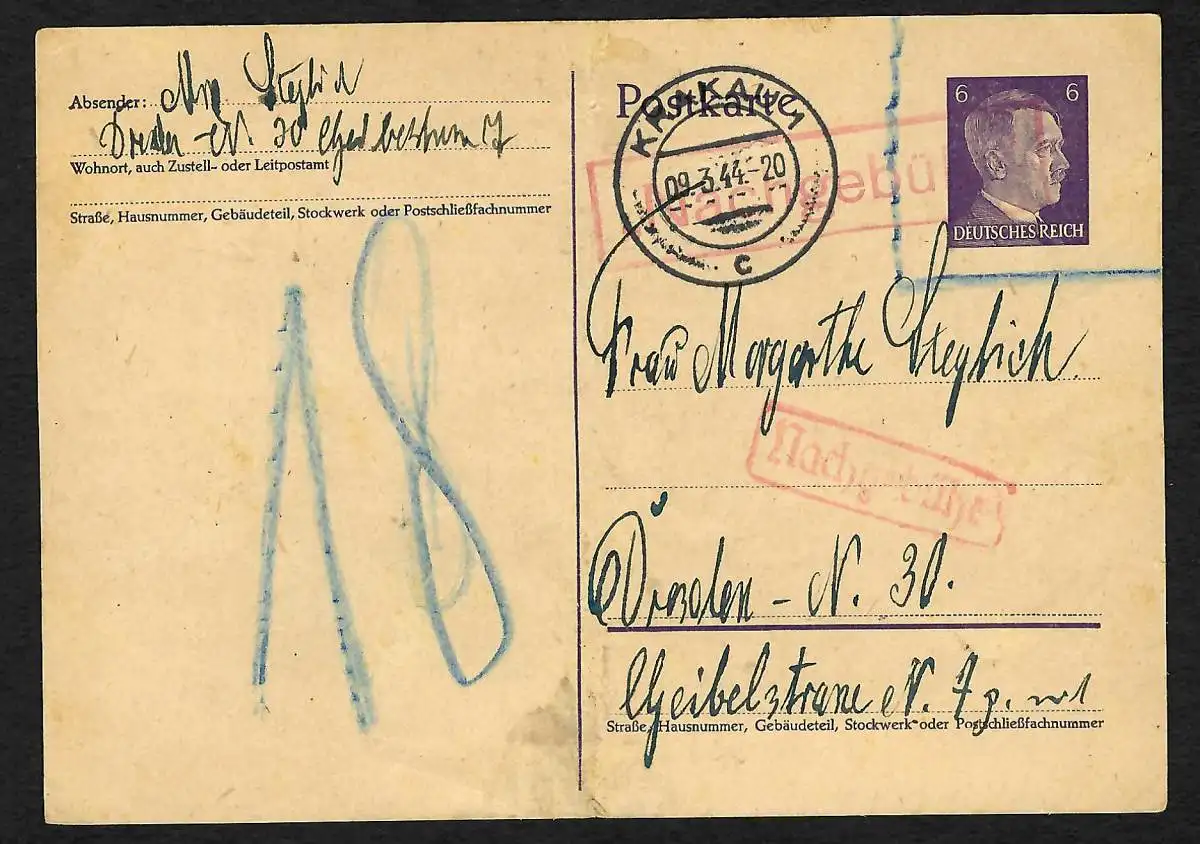 Absender:
Dresden-N. 30
Wohnort, auch Zustell- oder Leitpostamt
Straße, Hausnummer, Gebäudeteil, Stockwerk oder Postschließfachnummer
18
Postkarte
KRAKAU 1
09.3.44.-20
c
Nachgebü
6 6
DEUTSCHES REICH
Frau Margarthe Steglich.
Nachgebühr
Dresden - N. 30.
Geibelstrane N. 7
Straße, Hausnummer, Gebäudeteil, Stockwerk oder Postschließfachnummer